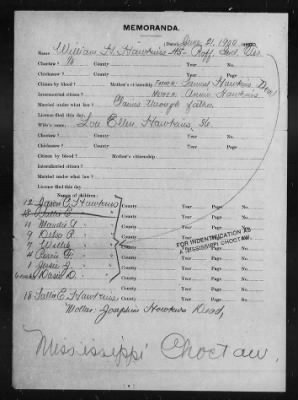 MEMORANDA.
(Date) June 21, 1900
Name William H. Hawkins -45- Raff, Ind. Ter.
Choctaw? No County Year Page No.
Chickasaw? County Year Page No.
Citizen by blood? Mother's citizenship Father James Hawkins, Dead
Intermarried citizen? Mother Annie Hawkins
Married under what law? Claims through father
License filed this day.
Wife's name, Lou Ellen Hawkins,
Choctaw? County Year Page No.
Chickasaw? County Year Page No.
Citizen by blood? Mother's citizenship
Intermarried citizen?
Married under what law?
License filed this day.
Names of children:
12 Jason C. Hawkins County Year Page No.
Sallie E. " County Year Page No.
11 Maudie A. " County Year Page No.
9 Delia P. " County Year Page No.
7 Willie " County Year Page No.
County Year Page No.
1 Jessie J. " County Year Page No.
David D. " County Year Page No.
FOR INDENTIFICATION AS
A MISSISSIPPI CHOCTAW.
18 Sallie E. Hawkins County Year Page No.
Mother: Josephine Hawkins Dead,
Mississippi Choctaw.